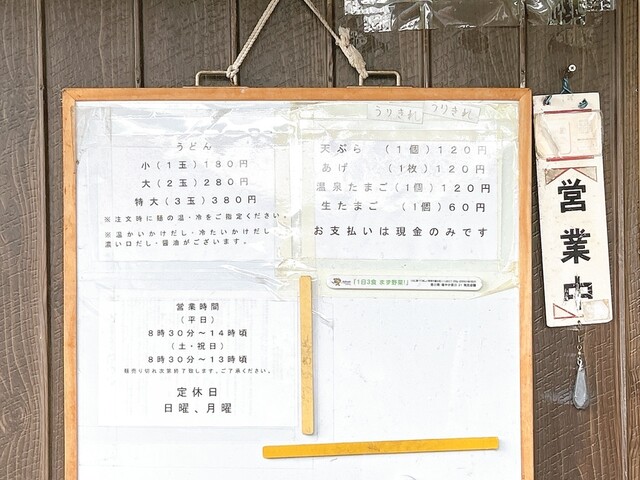 うりきれ
うりきれ
うどん
小(1玉)180円
大(2玉)280円
特大(3玉)380円
※注文時に麺の温・冷をご指定ください。
※温かいかけだし・冷たいかけだし
濃い口だし・醤油がございます。
天ぷら (1個)120円
あげ (1枚)120円
温泉たまご(1個)120円
生たまご (1個)60円
お支払いは現金のみです
「1日3食 まず野菜!」
営業時間
(平日)
8時30分~14時頃
(土・祝日)
8時30分~13時頃
麺売り切れ次第終了致します、ご了承ください。
定休日
日曜、月曜
営業中